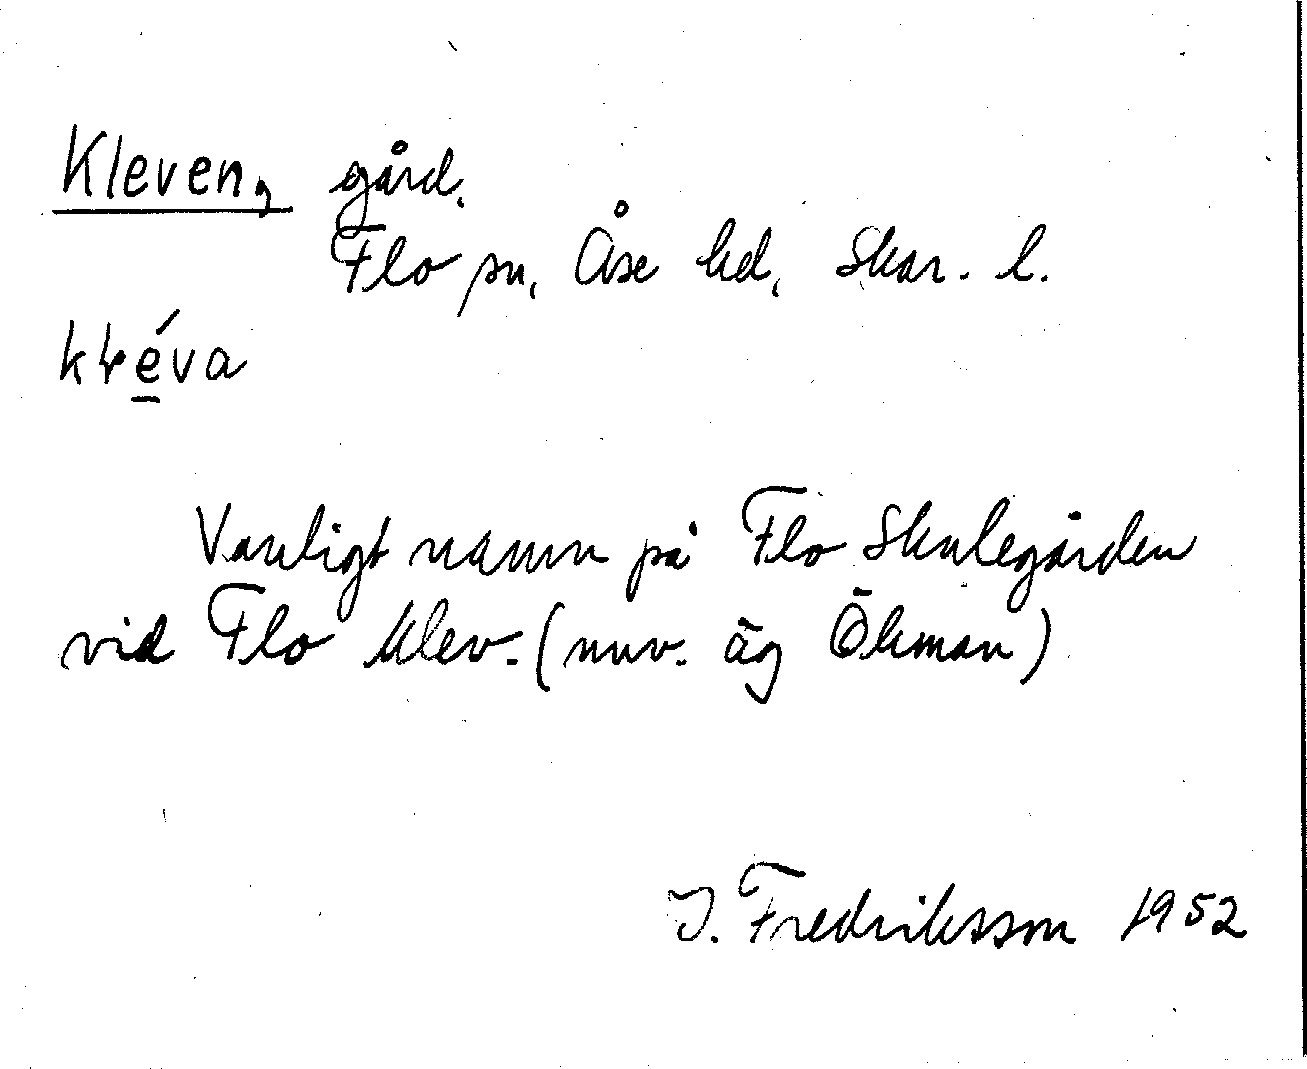 Kleven, gård,
Flo sn, Åse hd, Skar. l.
kłe̲´va
Vanligt namn på Flo Skulegården
vid Flo klev. (nuv. äg Ökman)
I. Fredriksson 1952